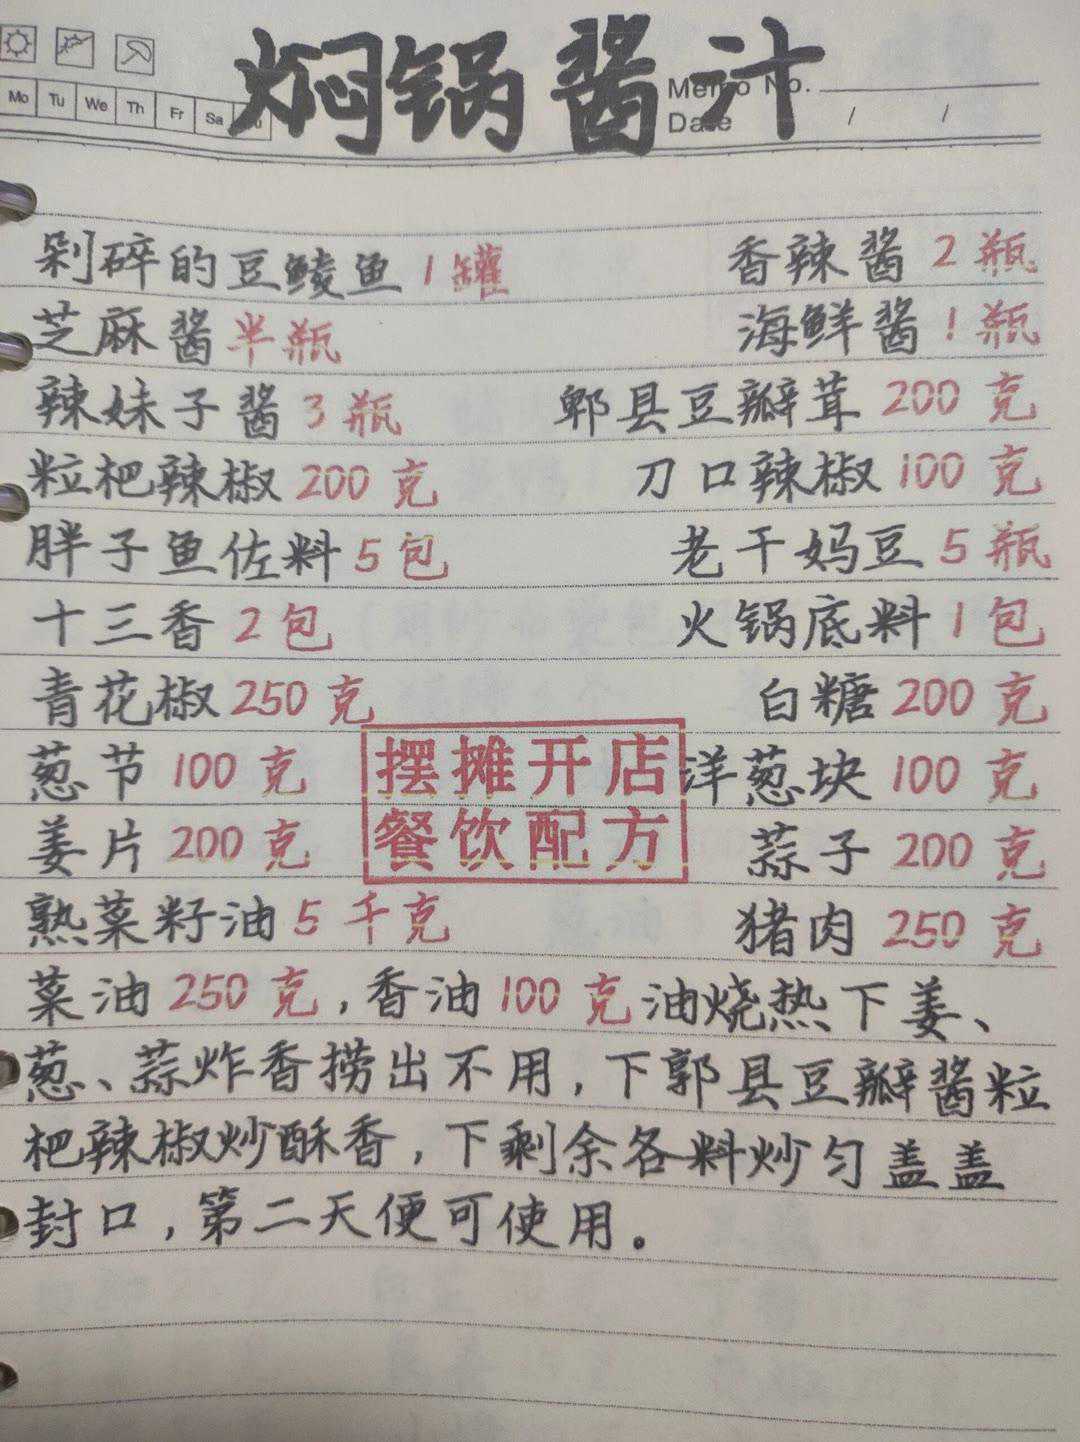 焖锅酱汁
Memo No.
Mo Tu We Th Fr Sa Su
Date / /
剁碎的豆鲮鱼1罐 香辣酱2瓶
芝麻酱半瓶 海鲜酱1瓶
辣妹子酱3瓶 郫县豆瓣茸200克
粒杷辣椒200克 刀口辣椒100克
胖子鱼佐料5包 老干妈豆5瓶
十三香2包 火锅底料1包
青花椒250克 白糖200克
葱节100克 洋葱块100克
摆摊开店
餐饮配方
姜片200克 蒜子200克
熟菜籽油5千克 猪肉250克
菜油250克,香油100克油烧热下姜、
葱、蒜炸香捞出不用,下郭县豆瓣酱粒
杷辣椒炒酥香,下剩余各料炒匀盖盖
封口,第二天便可使用。